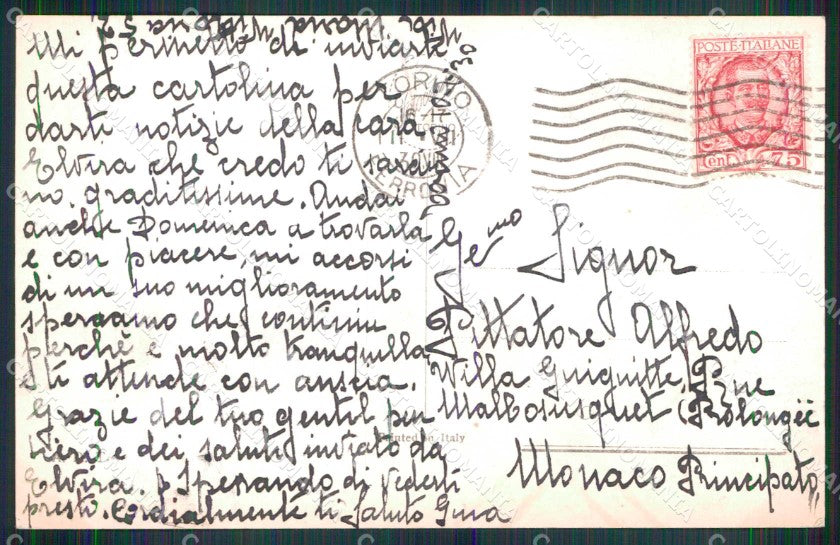 Mi permetto di inviarti
questa cartolina per
darti notizie della cara
Elvira che credo ti saran
no graditissime. Andai
anche Domenica a trovarla
e con piacere, mi accorsi
di un suo miglioramento
speraamo che continui
perchè è molto tranquilla
e ti attende con ansia.
Grazie del tuo gentil pen
siero e dei saluti inviato da
Elvira. Sperando di vederti
presto. Cordialmente ti saluto Gina
TORINO
FERROVIA
POSTE ITALIANE
Cent. 75
Ge.mo Signor
Pittatore Alfredo
Villa Guiguitte, Rue
Malbousquet (Prolongèe
Monaco Principato
Printed in Italy
CARTOLINOMANIA